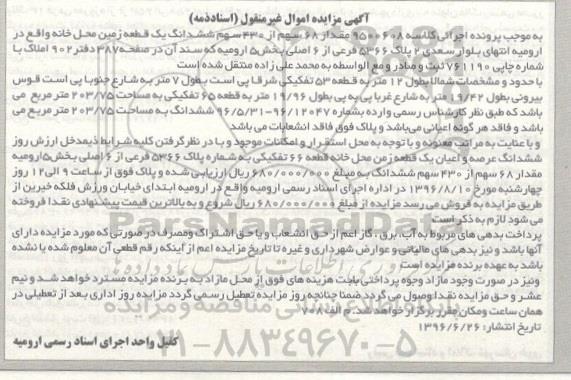 آگهی مزایده اموال غیرمنقول (اسنادذمه)
به موجب پرونده اجرائی کلاسه ۹۵۰۰۶۰۸ مقدار ۶۸ سهم از ۴۳۰ سهم ششدانگ یک قطعه زمین محل خانه واقع در
ارومیه انتهای بلوار سعدی ۲ پلاک ۵۳۶۶ فرعی از ۶ اصلی بخش ۵ ارومیه که سند آن در صفحه ۳۸۷ دفتر ۹۰۲ املاک با
شماره چاپی ۷۶۱۱۹۰ ثبت و صادر و مع الواسطه به محمد علی زاده منتقل شده است
با حدود و مشخصات شمالا بطول ۱۲ متر به قطعه ۵۳ تفکیکی شرقا پی است بطول ۷ متر به شارع جنوبا پی است قوس
بیرونی بطول ۱۹/۴۲ متر به شارع غربا پی به پی بطول ۱۹/۹۶ متر به قطعه ۶۵ تفکیکی به مساحت ۲۰۳/۷۵ متر مربع می
باشد که طبق نظر کارشناس رسمی وارده بشماره ۹۶/۱۲۰۴۷-۹۶/۵/۳۱ ششدانگ به مساحت ۲۰۳/۷۵ متر مربع می
باشد و فاقد هر گونه اعیانی می باشد و پلاک فوق فاقد انشعابات می باشد
و با عنایت به مراتب معنونه و با توجه به محل استقرار و امکانات موجود و با در نظر گرفتن کلیه شرایط ذیمدخل ارزش روز
ششدانگ عرصه و اعیان یک قطعه زمین محل خانه قطعه ۶۶ تفکیکی به شماره پلاک ۵۳۶۶ فرعی از ۶ اصلی بخش ۵ ارومیه
مقدار ۶۸ سهم از ۴۳۰ سهم ششدانگ به مبلغ ۶۸۰/۰۰۰/۰۰۰ ریال ارزیابی شده و پلاک فوق از ساعت ۹ الی ۱۲ روز
چهارشنبه مورخ ۱۳۹۶/۸/۱۰ در اداره اجرای اسناد رسمی ارومیه واقع در ارومیه ابتدای خیابان ورزش فلکه خیرین از
طریق مزایده به فروش می رسد مزایده از مبلغ ۶۸۰/۰۰۰/۰۰۰ ریال شروع و به بالاترین قیمت پیشنهادی نقدا فروخته
می شود لازم به ذکر است
پرداخت بدهی های مربوط به آب، برق، گاز اعم از حق انشعاب و یا حق اشتراک ومصرف در صورتی که مورد مزایده دارای
آنها باشد و نیز بدهی های مالیاتی و عوارض شهرداری و غیره تا تاریخ مزایده اعم از اینکه رقم قطعی آن معلوم شده یا نشده
باشد به عهده برنده مزایده است
ونیز در صورت وجود مازاد وجوه پرداختی بابت هزینه های فوق از محل مازاد به برنده مزایده مسترد خواهد شد و نیم
عشر و حق مزایده نقدا وصول می گردد ضمنا چنانچه روز مزایده تعطیل رسمی گردد مزایده روز اداری بعد از تعطیلی در
همان ساعت ومکان مقرر برگزار خواهد شد. م الف ۷۰۸
تاریخ انتشار: ۱۳۹۶/۶/۲۶
کفیل واحد اجرای اسناد رسمی ارومیه
ParsNamadData
۰۲۱-۸۸۳۴۹۶۷۰-۵